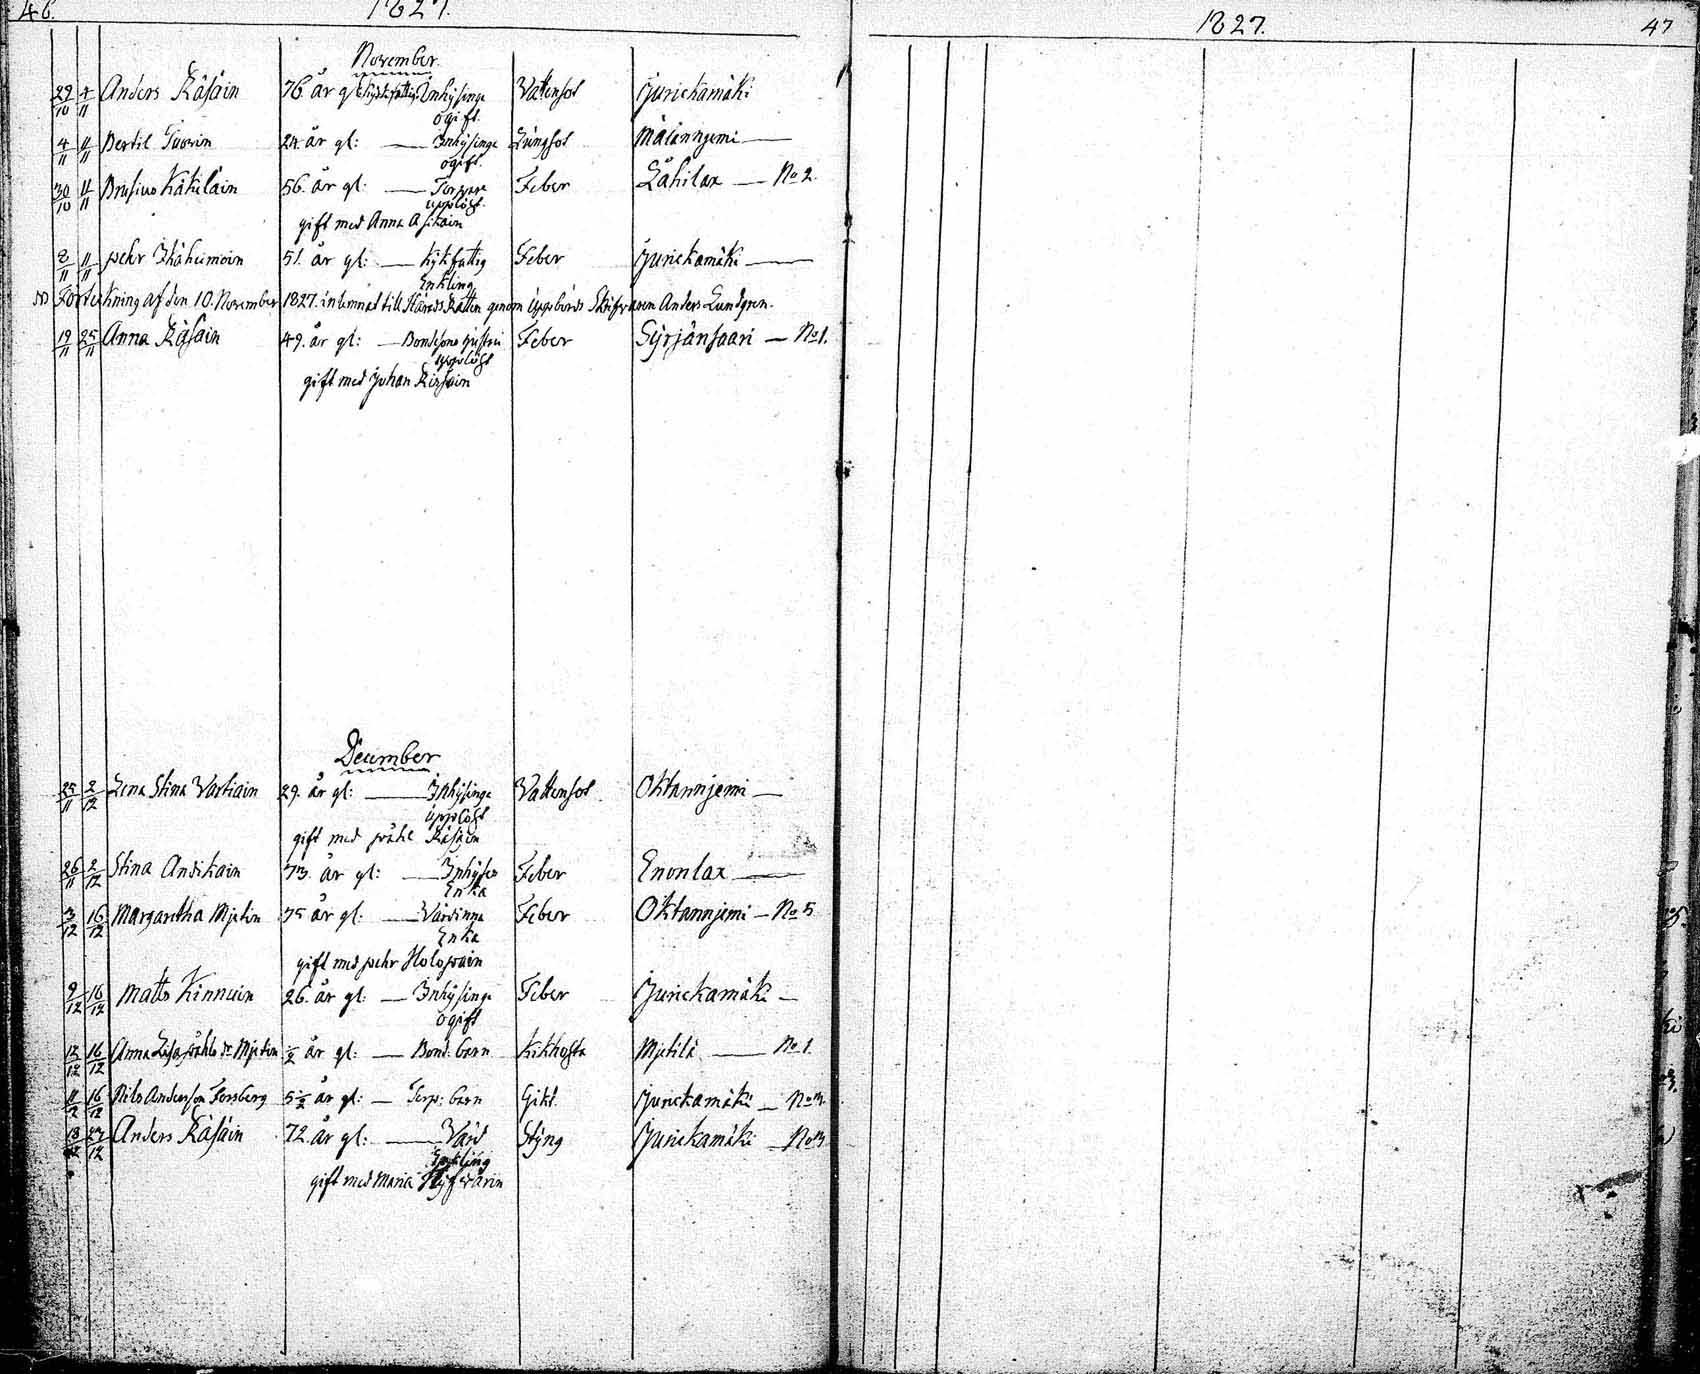 46. 1827.
November.
29/10 4/11 Anders Räsäin 76. år gl: kyrkfattig Inhysinge Vattensot Jurickamäki
ogift.
4/11 11/11 Bertil Tuovin 24. år gl: — Inhysinge Lungsot Mälännjemi —
ogift.
30/10 11/11 Brusius Käkiläin 56. år gl: — Torpare Feber Lähilax — No 2.
upplöst.
gift med Anna Asikain
2/11 11/11 pehr Ikäheimoin 51. år gl: — kykfattig Feber Jurickamäki —
Enkling
Förteckning af den 10. November 1827. inlemnat till Härads Rätten genom Uppbörds Skrifvaren Anders Lundgren.
19/11 25/11 Anna Räsäin 49. år gl: — Bondesons hustru Feber Syrjänsaari — No 1.
upplöst
gift med Johan
December
25/11 2/12 Lena Stina Vartiain 29. år gl: — Inhysinge Vattensot Oktannjemi —
upplöst
gift med påhl Räsäin
26/11 2/12 Stina Asikain 73. år gl: — Inhyses Feber Enonlax —
Enka
3/12 16/12 Margaretha Mjetin 75 år gl: — Värdinna Feber Oktannjemi — No 5
Enka
gift med pehr Holopain
9/12 16/12 Matts Kinnuin 26. år gl: — Inhysinge Feber Jurickamäki —
ogift
12/12 16/12 Anna Lisa påhls dr Mjetin ½ år gl: — Bond: barn Kikhosta Mjetilä — No 1.
11/12 16/12 Nils Andersson Forsberg 5½ år gl: — Torp: barn Gikt. Jurickamäki — No 3.
13/12 27/12 Anders Räsäin 72. år gl: — Värd Styng Jurickamäki — No 3
Enkling
gift med Maria
1827. 47